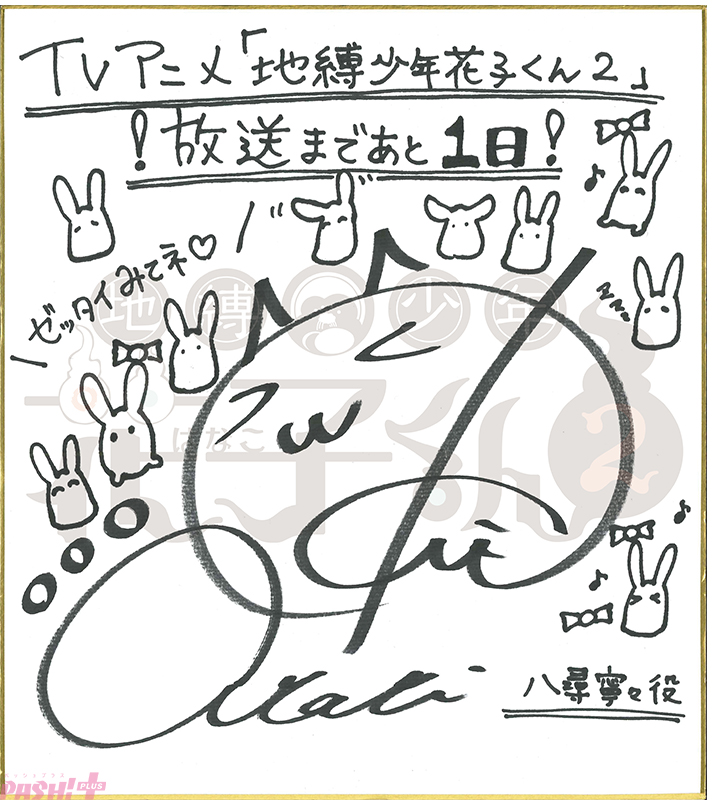 TVアニメ「地縛少年花子くん2」
!放送まであと1日!
ゼッタイみてネ♡
地縛少年
花子くん2
はなこ
zzz
Akari
八尋寧々役
PASH! PLUS